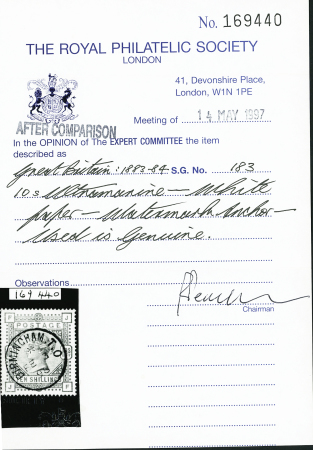 No. 169440
THE ROYAL PHILATELIC SOCIETY
LONDON
41, Devonshire Place,
London, W1N 1PE
Meeting of 14 MAY 1997
AFTER COMPARISON
In the OPINION of The EXPERT COMMITTEE the item
described as
Great Britain: 1883-84 S.G. No. 183
10s Ultramarine - White
paper - Watermark Anchor -
Used is Genuine.
Observations
Chairman
169 440
POSTAGE
BIRMINGHAM
TEN SHILLINGS